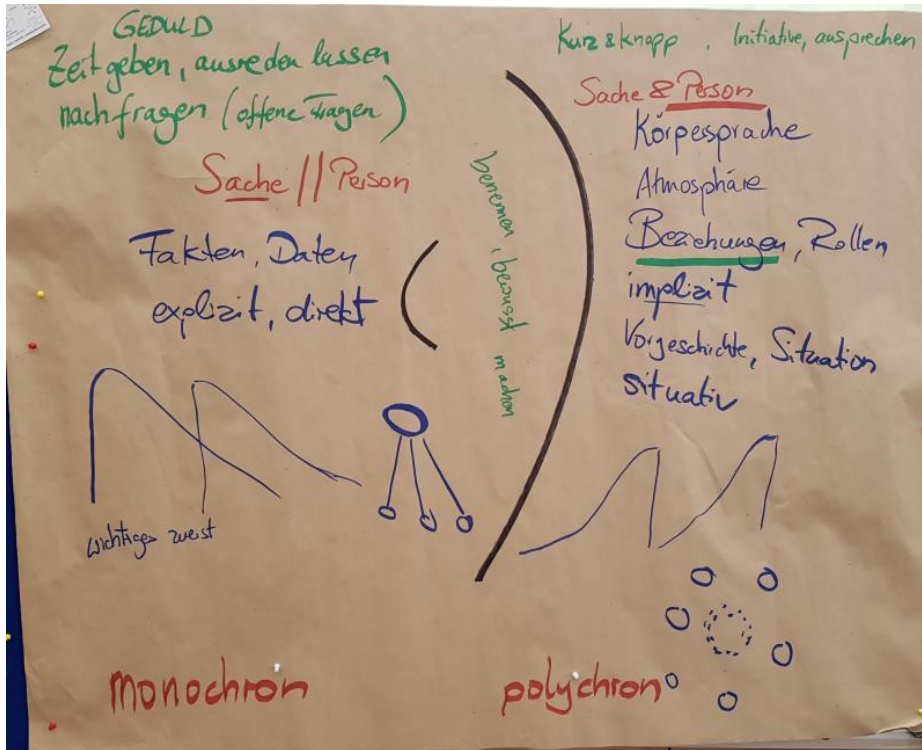 GEDULD
Zeit geben, ausreden lassen
nachfragen (offene Fragen)
Sache // Person
Fakten, Daten
explizit, direkt
wichtiges zuerst
monochron
benennen, bewusst machen
Kurz & knapp, Initiative, ansprechen
Sache & Person
Körpersprache
Atmosphäre
Beziehungen, Rollen
implizit
Vorgeschichte, Situation
situativ
polychron